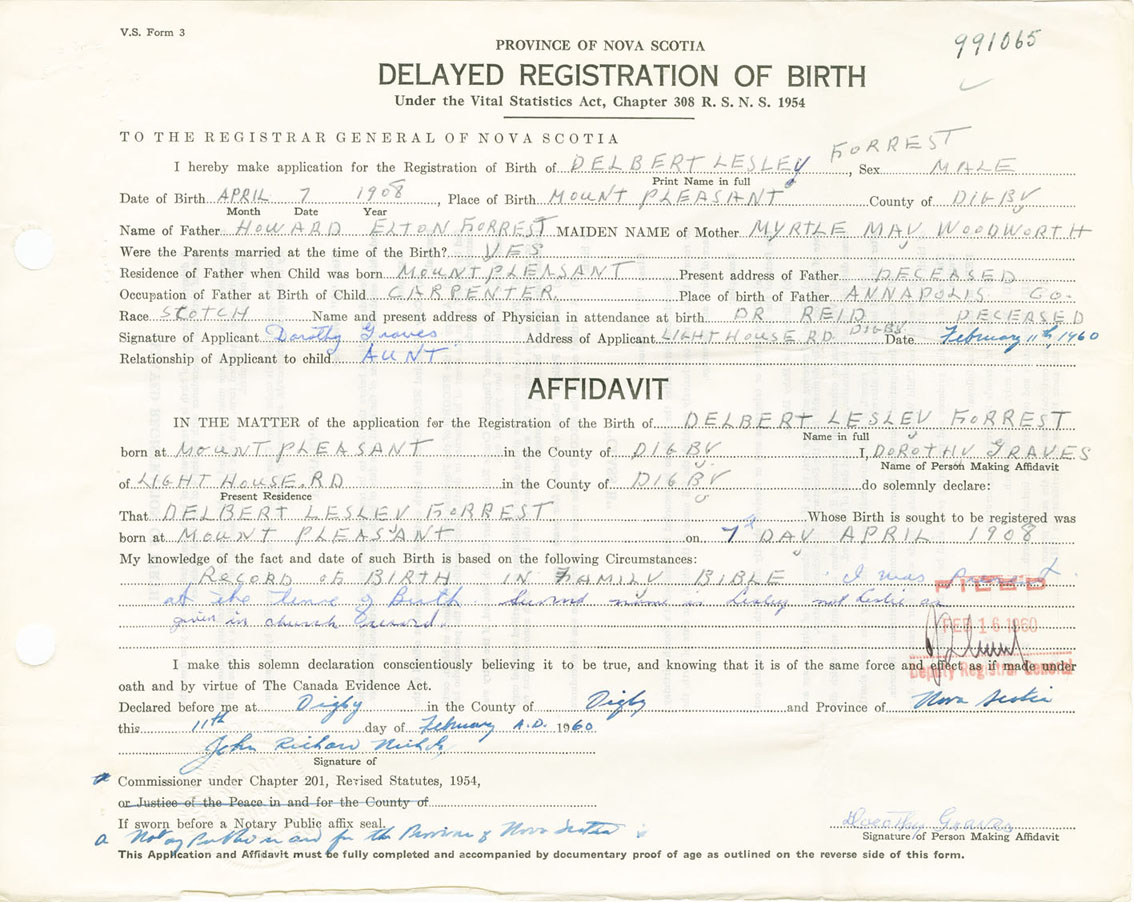 V.S. Form 3
991065
PROVINCE OF NOVA SCOTIA
DELAYED REGISTRATION OF BIRTH
Under the Vital Statistics Act, Chapter 308 R. S. N. S. 1954
TO THE REGISTRAR GENERAL OF NOVA SCOTIA
I hereby make application for the Registration of Birth of DELBERT LESLEY FORREST, Sex MALE
Print Name in full
Date of Birth APRIL 7 1908, Place of Birth MOUNT PLEASANT County of DIGBY
Month Date Year
Name of Father HOWARD ELTON FORREST MAIDEN NAME of Mother MYRTLE MAY WOODWORTH
Were the Parents married at the time of the Birth? YES
Residence of Father when Child was born MOUNT PLEASANT Present address of Father DECEASED
Occupation of Father at Birth of Child CARPENTER. Place of birth of Father ANNAPOLIS CO.
Race SCOTCH Name and present address of Physician in attendance at birth DR REID DECEASED
Signature of Applicant Dorothy Graves Address of Applicant LIGHT HOUSE RD DIGBY Date February 11th, 1960
Relationship of Applicant to child AUNT
AFFIDAVIT
IN THE MATTER of the application for the Registration of the Birth of DELBERT LESLEY FORREST
Name in full
born at MOUNT PLEASANT in the County of DIGBY I, DOROTHY GRAVES
Name of Person Making Affidavit
of LIGHT HOUSE RD in the County of DIGBY do solemnly declare:
Present Residence
That DELBERT LESLEY FORREST Whose Birth is sought to be registered was
born at MOUNT PLEASANT on 7th DAY APRIL 1908
My knowledge of the fact and date of such Birth is based on the following Circumstances:
RECORD OF BIRTH IN FAMILY BIBLE. I was present
FILED
at the time of Birth. Second name is Lesley not Leslie as
given in church record.
FEB 16 1960
I make this solemn declaration conscientiously believing it to be true, and knowing that it is of the same force and effect as if made under
Deputy Registrar General
oath and by virtue of The Canada Evidence Act.
Declared before me at Digby in the County of Digby and Province of Nova Scotia
this 11th day of February A.D. 1960
John Richard
Signature of
Commissioner under Chapter 201, Revised Statutes, 1954,
or Justice of the Peace in and for the County of
If sworn before a Notary Public affix seal.
a Notary Public in and for the Province of Nova Scotia
Dorothy Graves
Signature of Person Making Affidavit
This Application and Affidavit must be fully completed and accompanied by documentary proof of age as outlined on the reverse side of this form.